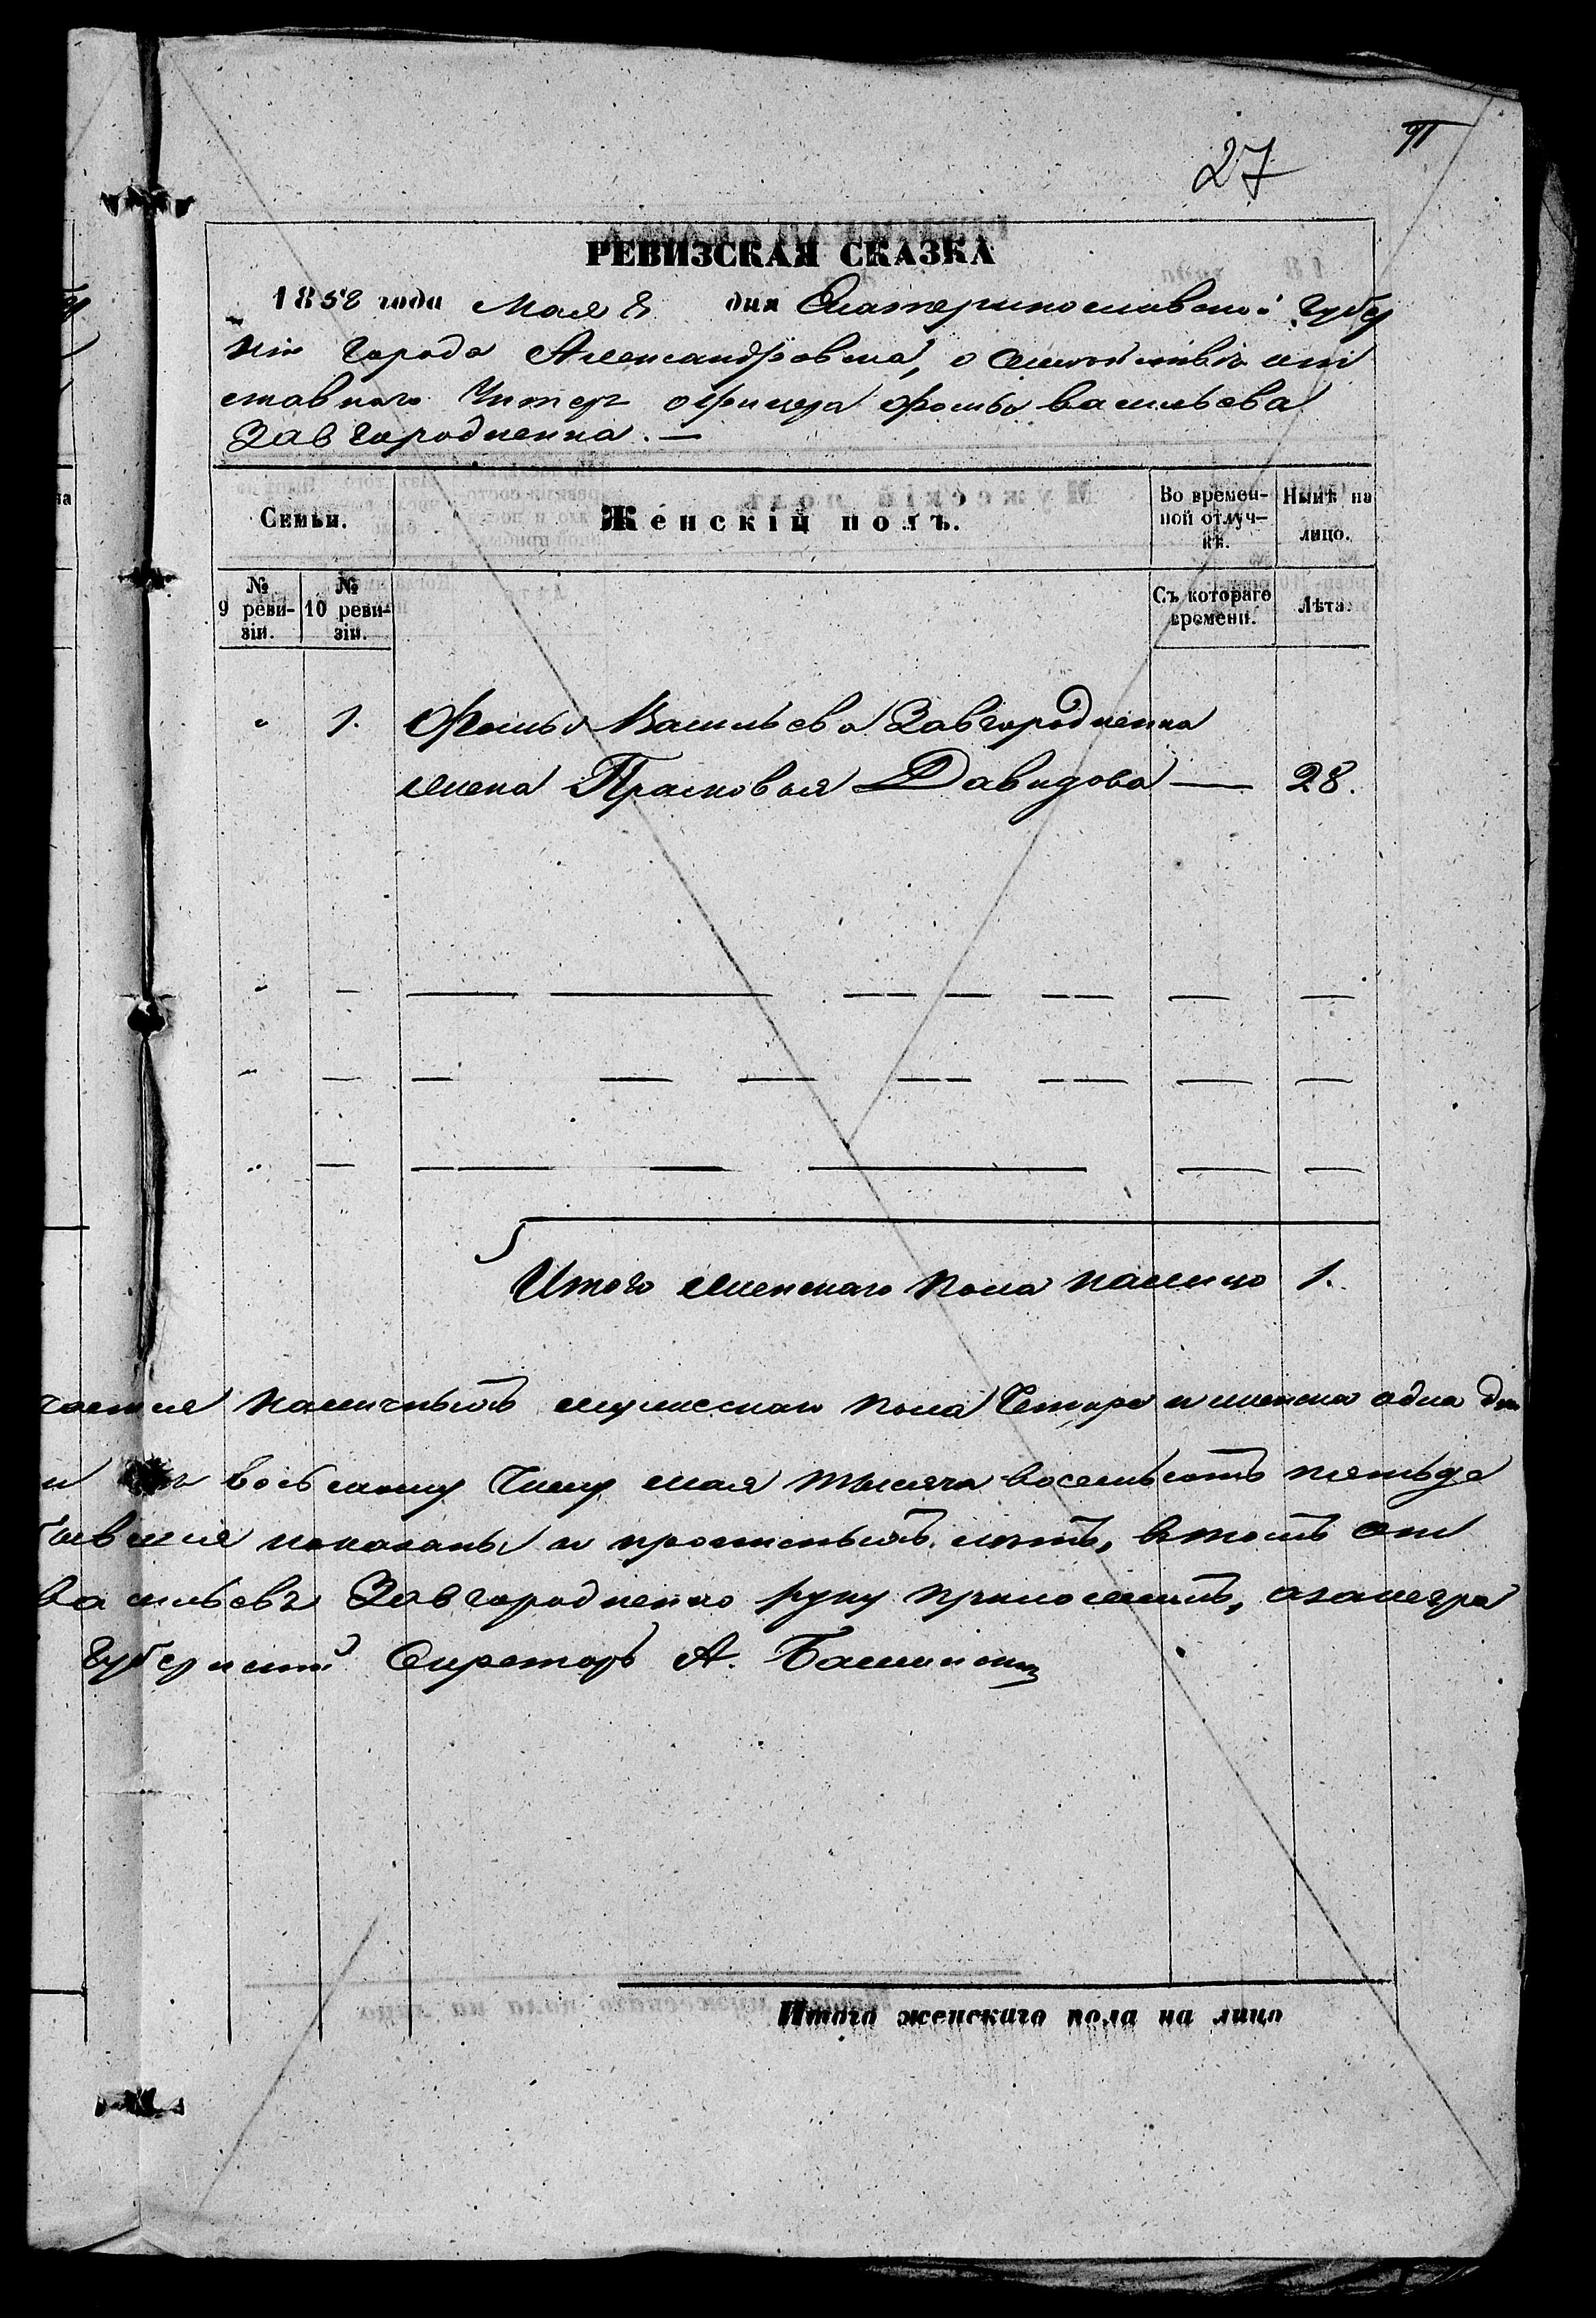 27
РЕВИЗСКАЯ СКАЗКА
1858 года Мая 8 дня Екатеринославской Губер
ніи города Александровска, о семействѣ от
ставнаго Унтеръ офицера Фомы Васильева
Завгородненка. —
Семьи.
Женскій полъ.
Во времен-
ной отлуч-
кѣ.
Нынѣ на
лицо.
№
9 реви-
зіи.
№
10 реви-
зіи.
Съ котораго
времени.
Лѣта.
" 1. Фомы Васильева Завгородненка
жена Прасковья Давидова — 28.
Итого женскаго пола налицо 1.
наличныхъ мужескаго пола четыре и женска одна
восьмому числу мая тысяча восемьсотъ пятьде
показаны и прописныхъ нѣтъ, втомъ
Васильевъ Завгородненко руку приложилъ,
Губернскій Секретарь А.
Итого женскаго пола на лицо